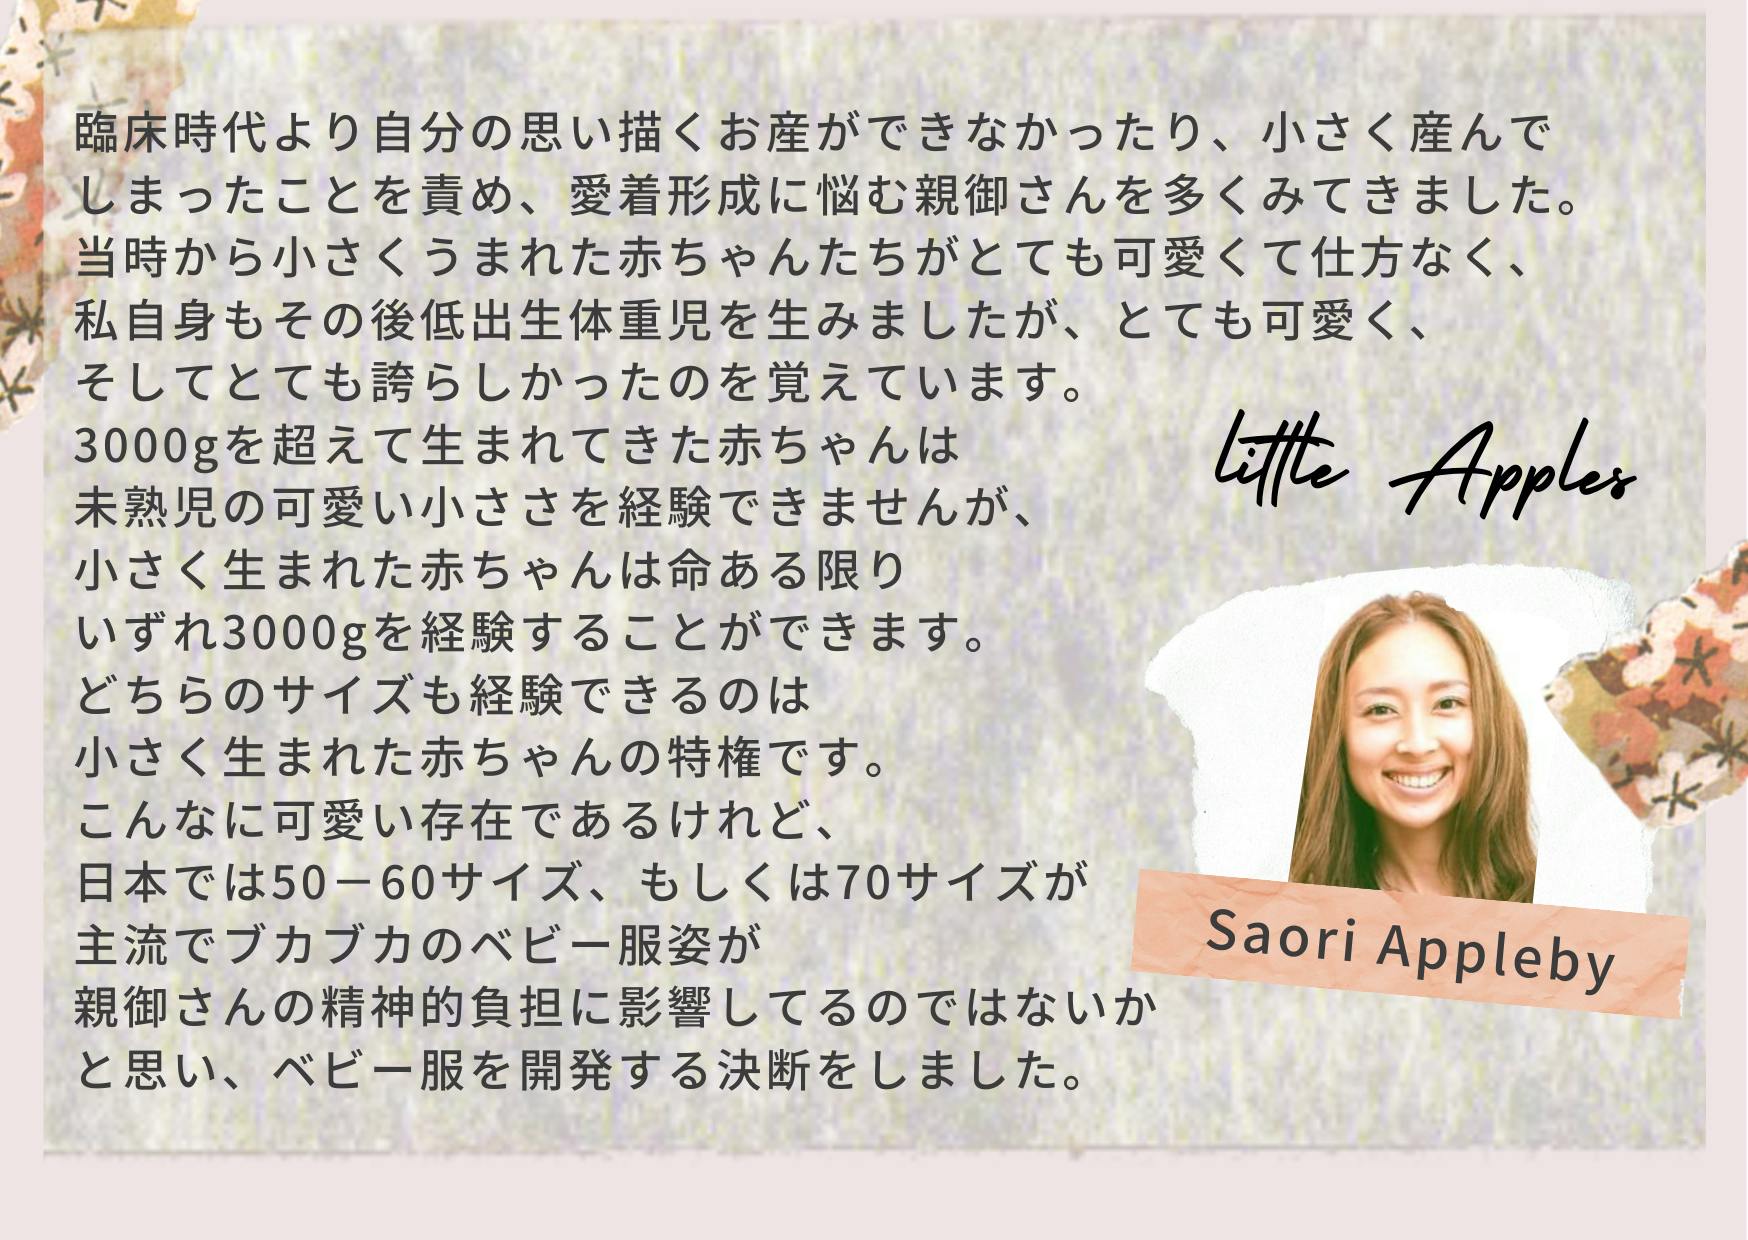 臨床時代より自分の思い描くお産ができなかったり、小さく産んで
しまったことを責め、愛着形成に悩む親御さんを多くみてきました。
当時から小さくうまれた赤ちゃんたちがとても可愛くて仕方なく、
私自身もその後低出生体重児を生みましたが、とても可愛く、
そしてとても誇らしかったのを覚えています。
3000gを超えて生まれてきた赤ちゃんは
未熟児の可愛い小ささを経験できませんが、
小さく生まれた赤ちゃんは命ある限り
いずれ3000gを経験することができます。
どちらのサイズも経験できるのは
小さく生まれた赤ちゃんの特権です。
こんなに可愛い存在であるけれど、
日本では50－60サイズ、もしくは70サイズが
主流でブカブカのベビー服姿が
親御さんの精神的負担に影響してるのではないか
と思い、ベビー服を開発する決断をしました。
little Apples
Saori Appleby